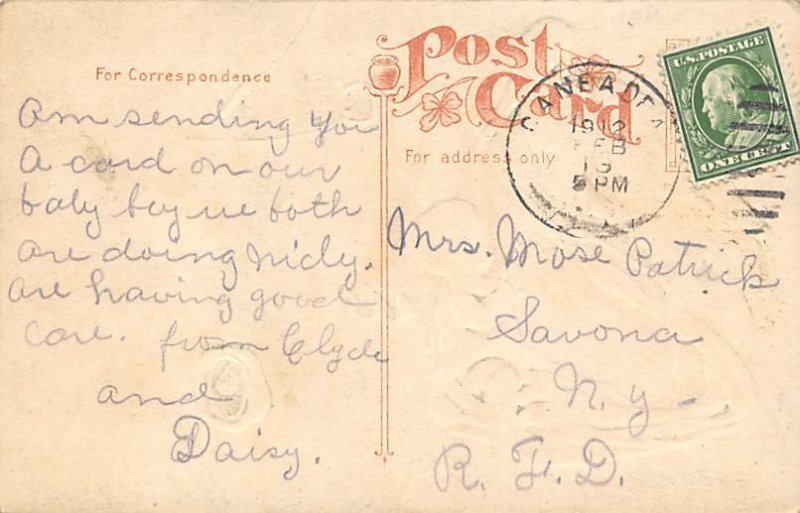 For Correspondence
Am sending you
A card on our
baby boy we both
are doing nicly.
are having good
care. from Clyde
and
Daisy.
Post
Card
For address only
CANEADEA
1912
FEB
5 PM
U.S. POSTAGE
ONE CENT
Mrs. Mose Patrick
Savona
N. Y -
R. F. D.